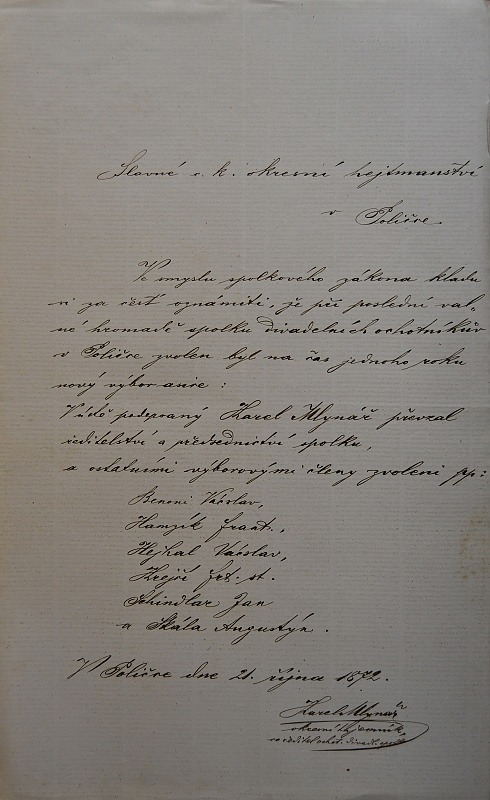 Slavné c. k. okresní hejtmanství
v Poličce
Ve smyslu spolkového zákona kladu
si za čest oznámiti, že při poslední val„
né hromadě spolku divadelních ochotníkův
v Poličce zvolen byl na čas jednoho roku
nový výbor a sice:
V úctě podepsaný Karel Mlynář převzal
ředitelství a předsednictví spolku,
a ostatními výborovými členy zvoleni pp:
Benoni Václav,
Hamzík Frant.,
Hejkal Václav,
Krejčí Frt. st.
Schindlar Jan
a Skála Augustýn.
V Poličce dne 21. října 1872.
Karel Mlynář
okresní tajemník
ředitel ochot. divadl.